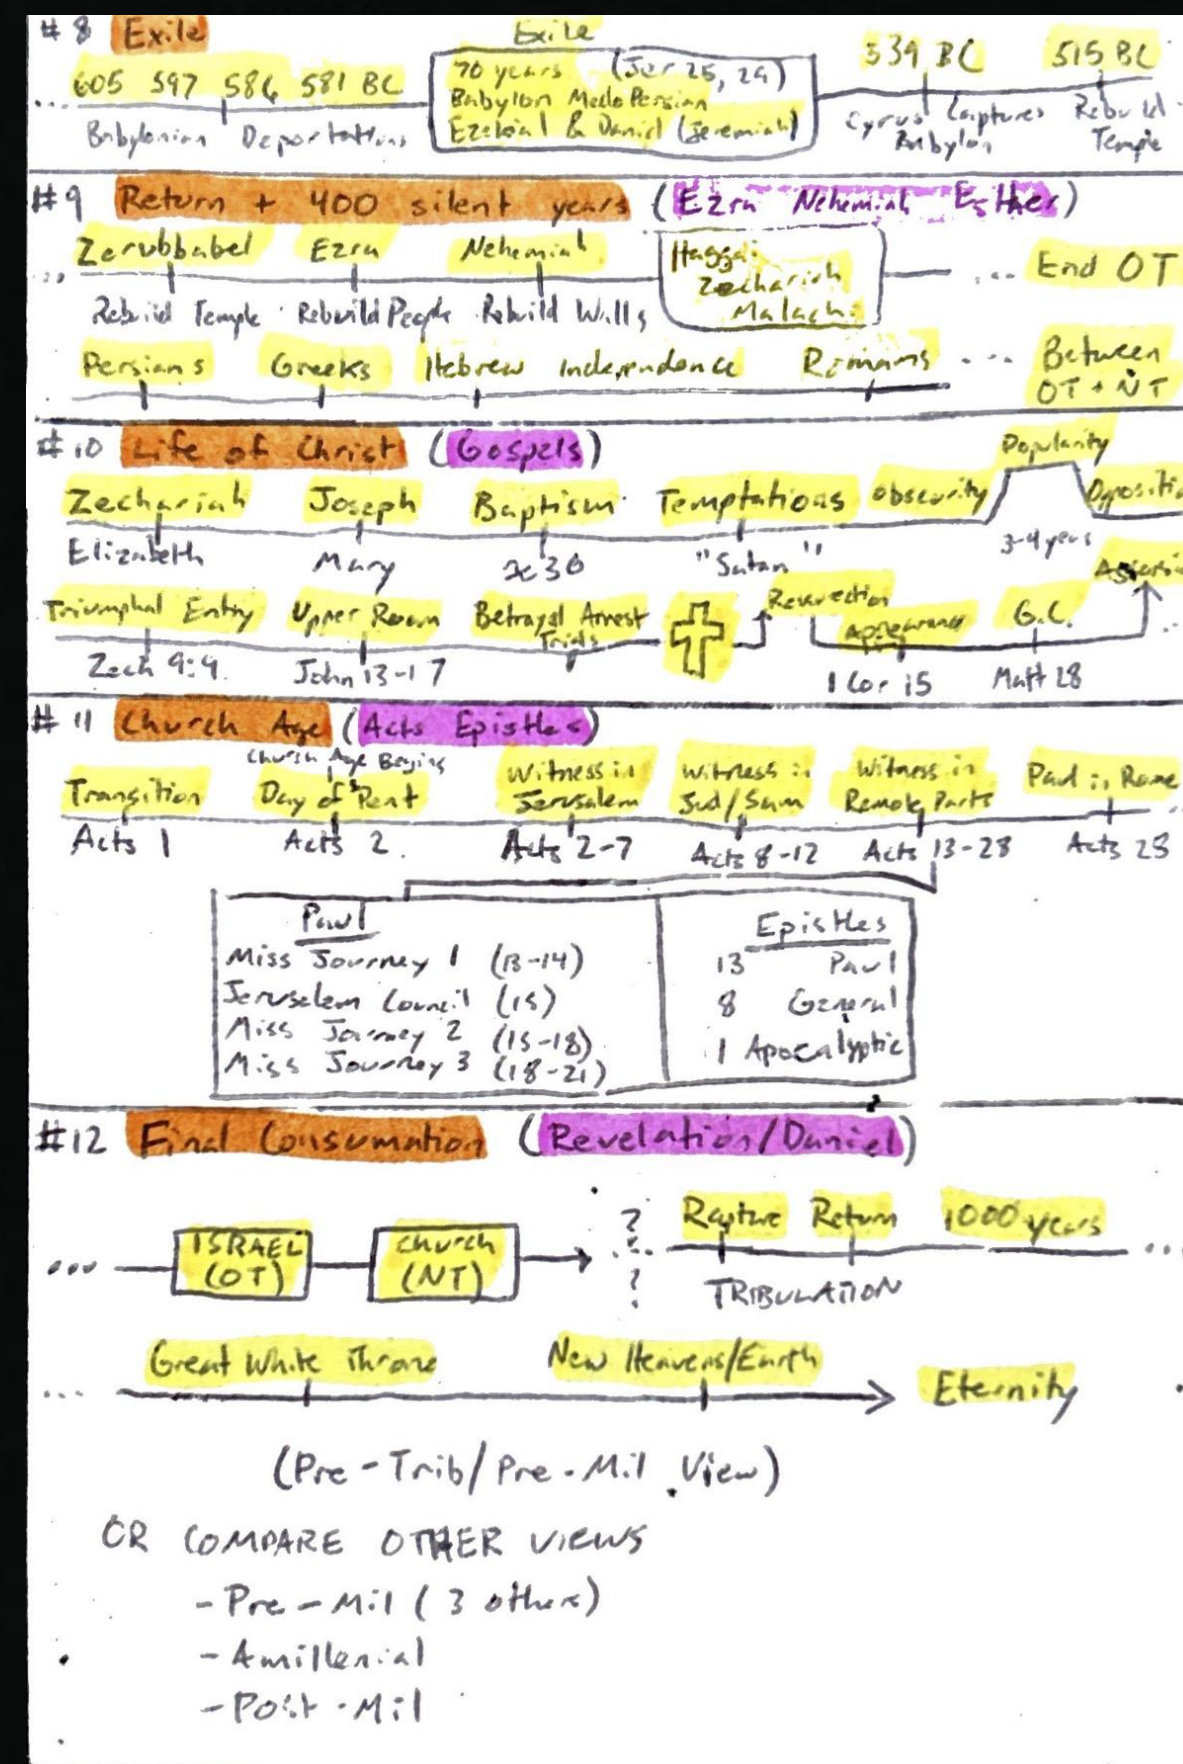 #8 Exile
Exile
605 597 586 581 BC
Babylonian Deportations
70 years (Jer 25, 29)
Babylon MedoPersian
Ezekial & Daniel (Jeremiah)
539 BC 515 BC
Cyrus Captures Babylon
Rebuild Temple
#9 Return + 400 silent years (Ezra Nehemiah Esther)
Zerubbabel Ezra Nehemiah
Rebuild Temple Rebuild People Rebuild Walls
Haggai
Zechariah
Malachi
... End OT
Persians Greeks Hebrew Independence Romans ... Between
OT + NT
#10 Life of Christ (Gospels)
Popularity
Zechariah Joseph Baptism Temptations Obscurity Oppositi
Elizabeth Mary 30 "Satan" 3-4 years
Triumphal Entry Upper Room Betrayal Arrest
Trials
Resurrection
Appearances G.C.
Zech 9:9 John 13-17 1 Cor 15 Matt 28
#11 Church Age (Acts Epistles)
Church Age Begins
Transition Day of Pent Witness in Jerusalem Witness in Jud/Sam Witness in Remote Parts Paul in Rome
Acts 1 Acts 2 Acts 2-7 Acts 8-12 Acts 13-28 Acts 28
Paul
Miss Journey 1 (13-14)
Jerusalem Council (15)
Miss Journey 2 (15-18)
Miss Journey 3 (18-21)
Epistles
13 Paul
8 General
1 Apocalyptic
#12 Final Consumation (Revelation/Daniel)
... ISRAEL
(OT)
Church
(NT)
?
?
Rapture Return 1000 years ...
TRIBULATION
Great White Throne New Heavens/Earth
... Eternity
(Pre-Trib/Pre-Mil View)
OR COMPARE OTHER VIEWS
- Pre-Mil (3 others)
- Amillenial
- Post-Mil